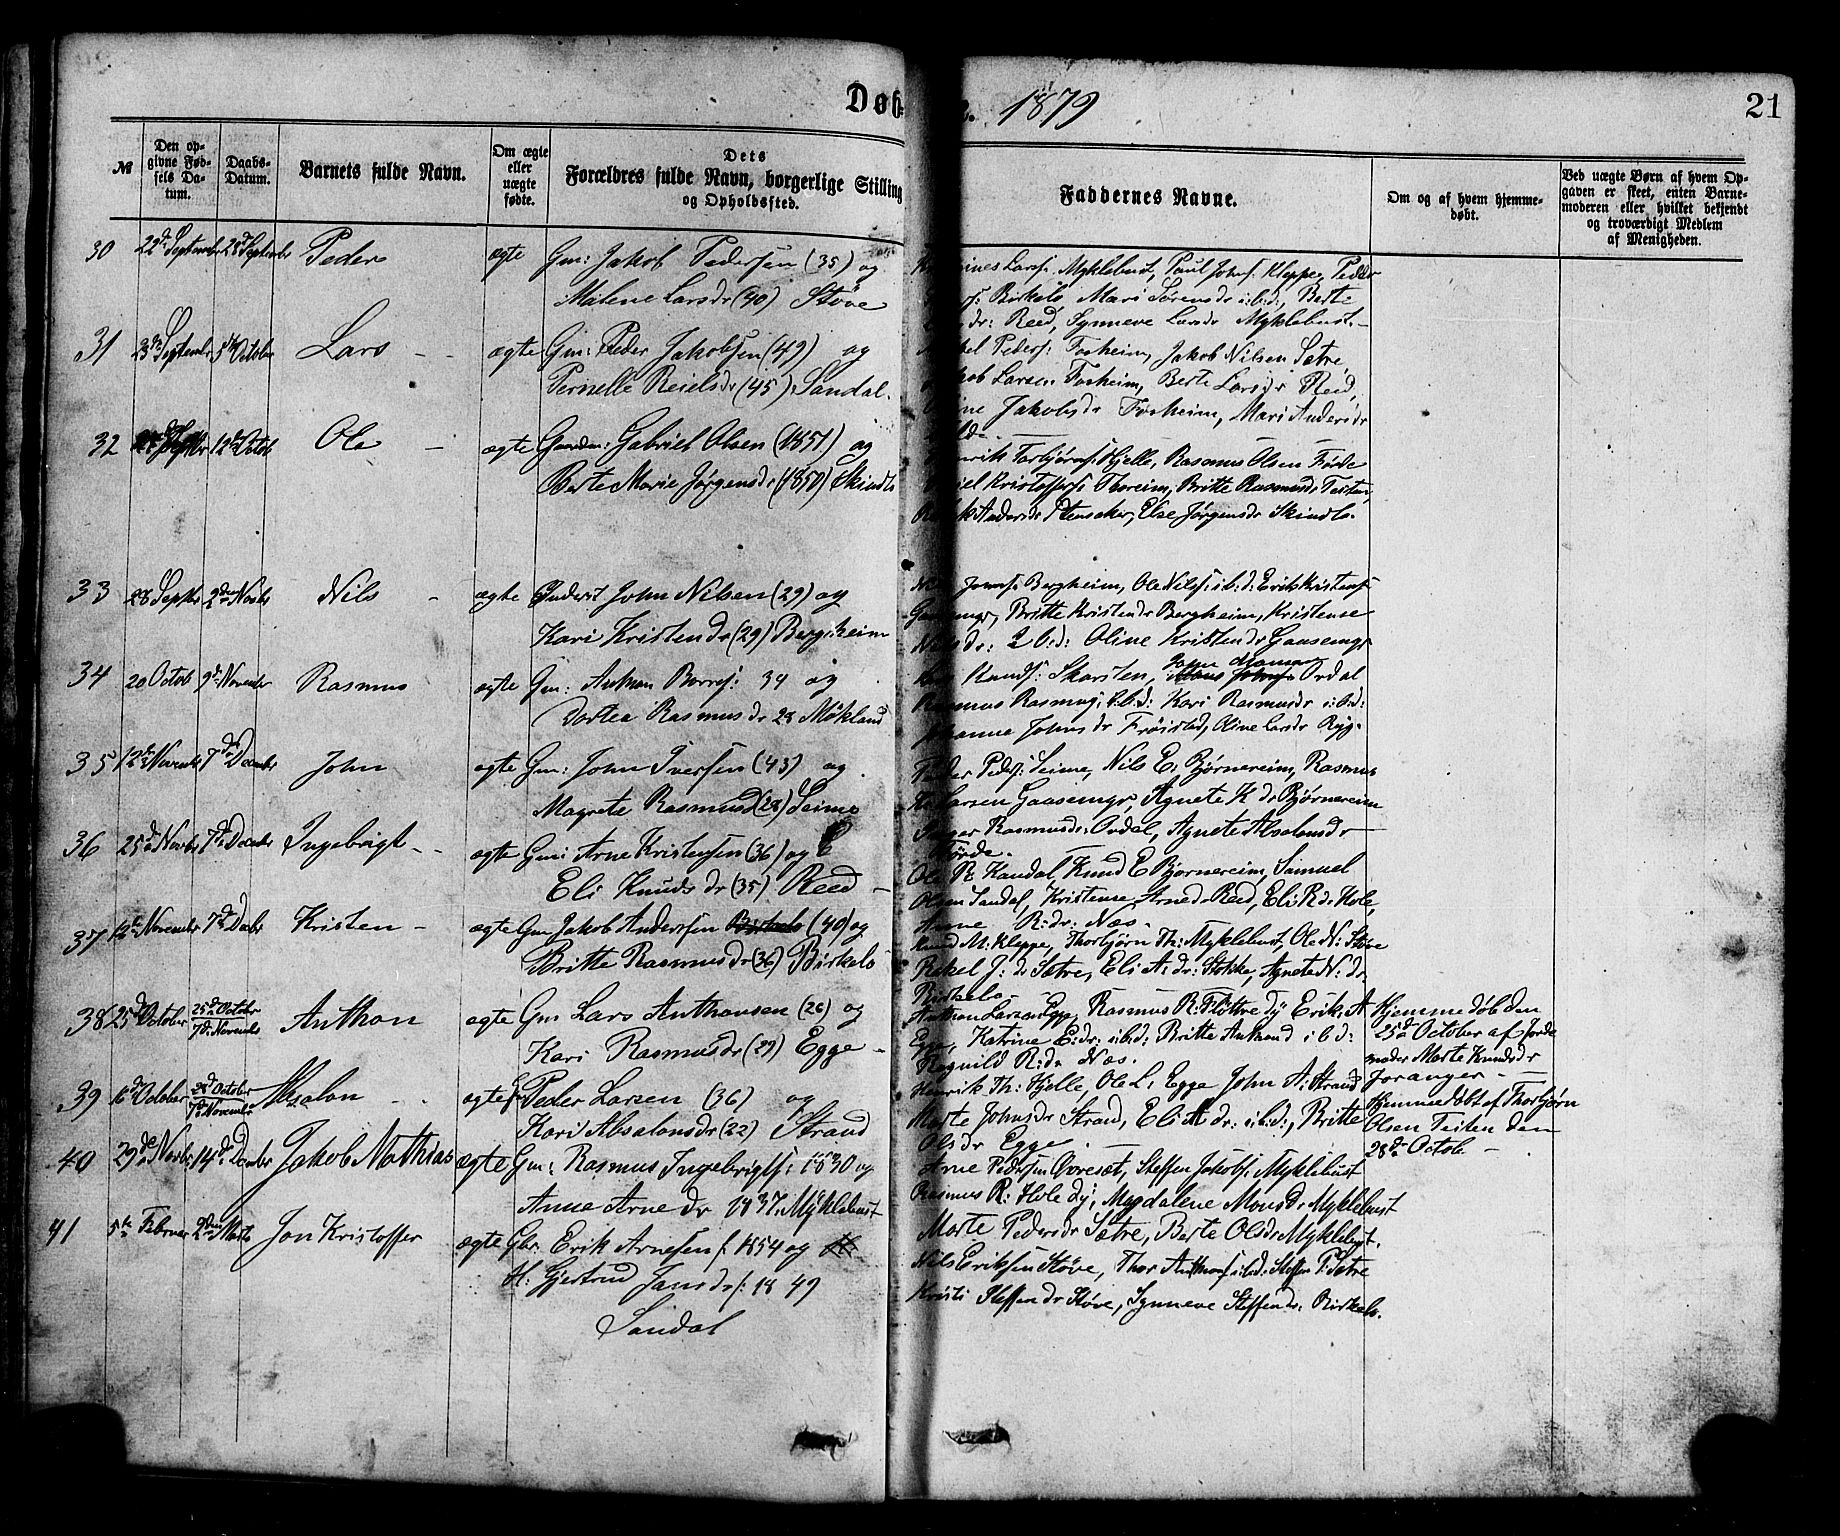 Døb
1879
21
№
Den opgivne Fødsels Datum.
Daabs-Datum.
Barnets fulde Navn.
Om ægte eller uægte fødte.
Dets
Forældres fulde Navn, borgerlige Stilling
og Opholdssted.
Faddernes Navne.
Om og af hvem hjemmedøbt.
Ved uægte Børn af hvem Opgaven er skeet, enten Barnemoderen eller hvilket bekjendt og troværdigt Medlem af Menigheden.
30 22de September 28de September Peder ægte Gm: Jakob Pedersen (35) og
Malene Larsdr (40) Støve
Larss: Myklebust, Paul Johns: Kleppe, Peder
Birkelo Mari Sørensdr i:b:d:, Berte
dr: Reed, Synneve Larsdr Myklebust.
31 23de Septembr 5te October Lars ægte Gm: Peder Jakobsen (49) og
Pernelle Reielsdr (45) Sandal.
Peders: Forheim, Jakob Nilsen Sætre
Larsen Forheim, Berte Larsdr Reed,
Jakobsdr Forheim, Mari Andersdr
32 12te Octob Ole ægte Gmdm: Gabriel Olsen (1851) og
Berte Marie Jørgensdr (1850) Skindlo
Torbjørns: Hjelle, Rasmus Olsen Førde
Kristoffers: Thoreim, Britte Rasmusdr Teiten,
Andersdr Stensaker, Else Jørgensdr Skindlo.
33 28 Septbr 2den Novbr Nils ægte Inderst John Nilsen (29) og
Kari Kristendr (29) Bergheim
Johns: Bergheim, Ole Nils: i:b:d: Erik Kristens:
Britte Kristendr Bergheim, Kristense
dr: i b:d: Oline Kristendr Gaasemyr
34 20 Octob 9de November Rasmus ægte Gm: Anthon Borres: 34 og
Dortea Rasmusdr 28 Møkland
Knuds: Skarsten, Ordal
Rasmus Rasmus: i:b:d: Kari Rasmusdr i:b:d:
Johnsdr Frøistad, Oline Larsdr Ryg.
35 12te November 7de December John ægte Gm: John Iversen (43) og
Magrete Rasmusd (28) Seime
Peder Peders: Seime, Nils E: Bjørnereim, Rasmus
Larsen Gaasemyr, Agnete K dr Bjørnereim
Rasmusdr: Ordal, Agnete Absalonsdr
Førde.
36 25de Novbr 7de Decembr Ingebrigt ægte Gm: Arne Kristensen (36) og
Eli Knudsdr (35) Reed
Ole R: Kandal, Knud E Bjørnereim, Samuel
Olsen Sandal, Kristense Arnedr Reed, Eli R: dr Hole,
Anne R: dr: Næs.
37 12te November 7de Decbr Kristen ægte Gm Jakob Andersen (40) og
Britte Rasmusdr (36) Birkelo
Knud M: Kleppe, Thorbjørn Th: Myklebust, Ole N: Støve
Rakel J: dr Sætre, Eli A: dr: Stokke, Agnete N: dr
Birkelo.
38 25de October 25de October 7de November Anthon ægte Gm Lars Anthonsen (26) og
Kari Rasmusdr (29) Egge
Anthon Larsen Egge, Rasmus R: Flöttre dy Erik: A
Egge, Katrine E: dr: i:b:d: Britte Anthond i b:d:
Ragnild R: dr Næs.
Hjemmedöb den
25de October af Jorde
moder Marte Knudsdr
Joranger
39 16de October 28de October 7de November Absalon ægte Peder Larsen (36) og
Kari Absalonsdr (22) Strand
Henrik Th: Hjelle, Ole L: Egge John A: Strand
Marte Johnsdr Strand, Eli A dr: i:b:d:, Britte
Olsdr Egge
Hjemmedöbt af Thorbjørn
Olsen Teiten den
28de Octob
40 29de Novbr 14de Decmbr Jakob Mathias ægte Gm: Rasmus Ingebrigts: 1830 og
Anne Arne dr 1837. Myklebust
Arne Pedersen Øvresæt, Steffen Jakobs: Myklebust
Rasmus R: Hole dy, Magdalene Monsdr Myklebust
Marte Pedersdr Sætre, Berte Olsdr Myklebst.
41 5te Februar 2den Marts Jon Kristoffer ægte Gbr. Erik Arnesen f: 1854 og
H: Gjertrud Jansdr f: 1849
Sandal
Nils Eriksen Støve, Thor Anthons i:b:d: Steffen P: Sætre
Kristi Steffendr Støve, Synneve Steffendr: Birkelo.